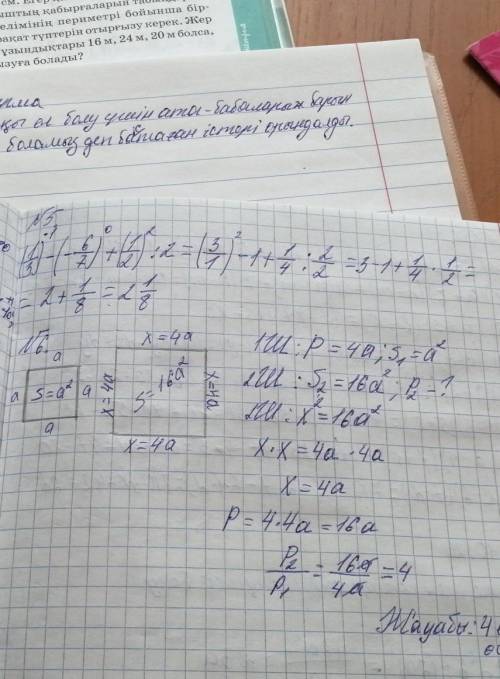 см.
қабырғаларын
елімінің периметрі бойынша бір-
түптерін отырғызу керек. Жер
ұзындықтары 16 м, 24 м, 20 м болса,
ызуға болады?
ел болу үшін ата-бабаларын барын
боламыз деп бастаған істері орындалды.
№5
(1/3)^-1 - (-6/7)^0 + (1/2)^2 : 2 = (3/1)^2 - 1 + 1/4 : 2/2 = 3-1+1/4 · 1/2 =
= 2 + 1/8 = 2 1/8
№6.
a
a S=a² a
a
x=4a
x=4a S=16a² x=4a
x=4a
1Ш: P=4a; S₁=a²
2Ш: S₂=16a²; P₂=?
2Ш: x²=16a²
x·x=4a·4a
x=4a
P=4·4a=16a
P₂/P₁=16a/4a=4
Жауабы: 4